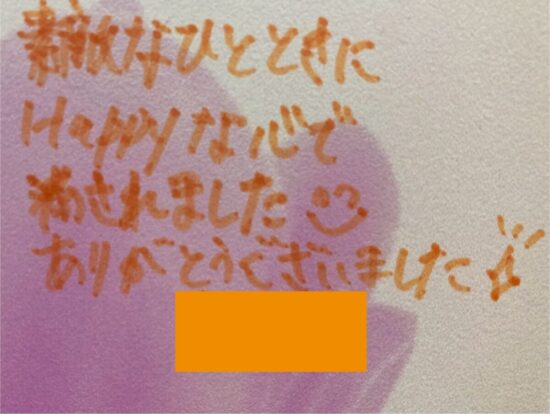 素敵なひとときに
Happyな心で
満されました
ありがとうございました